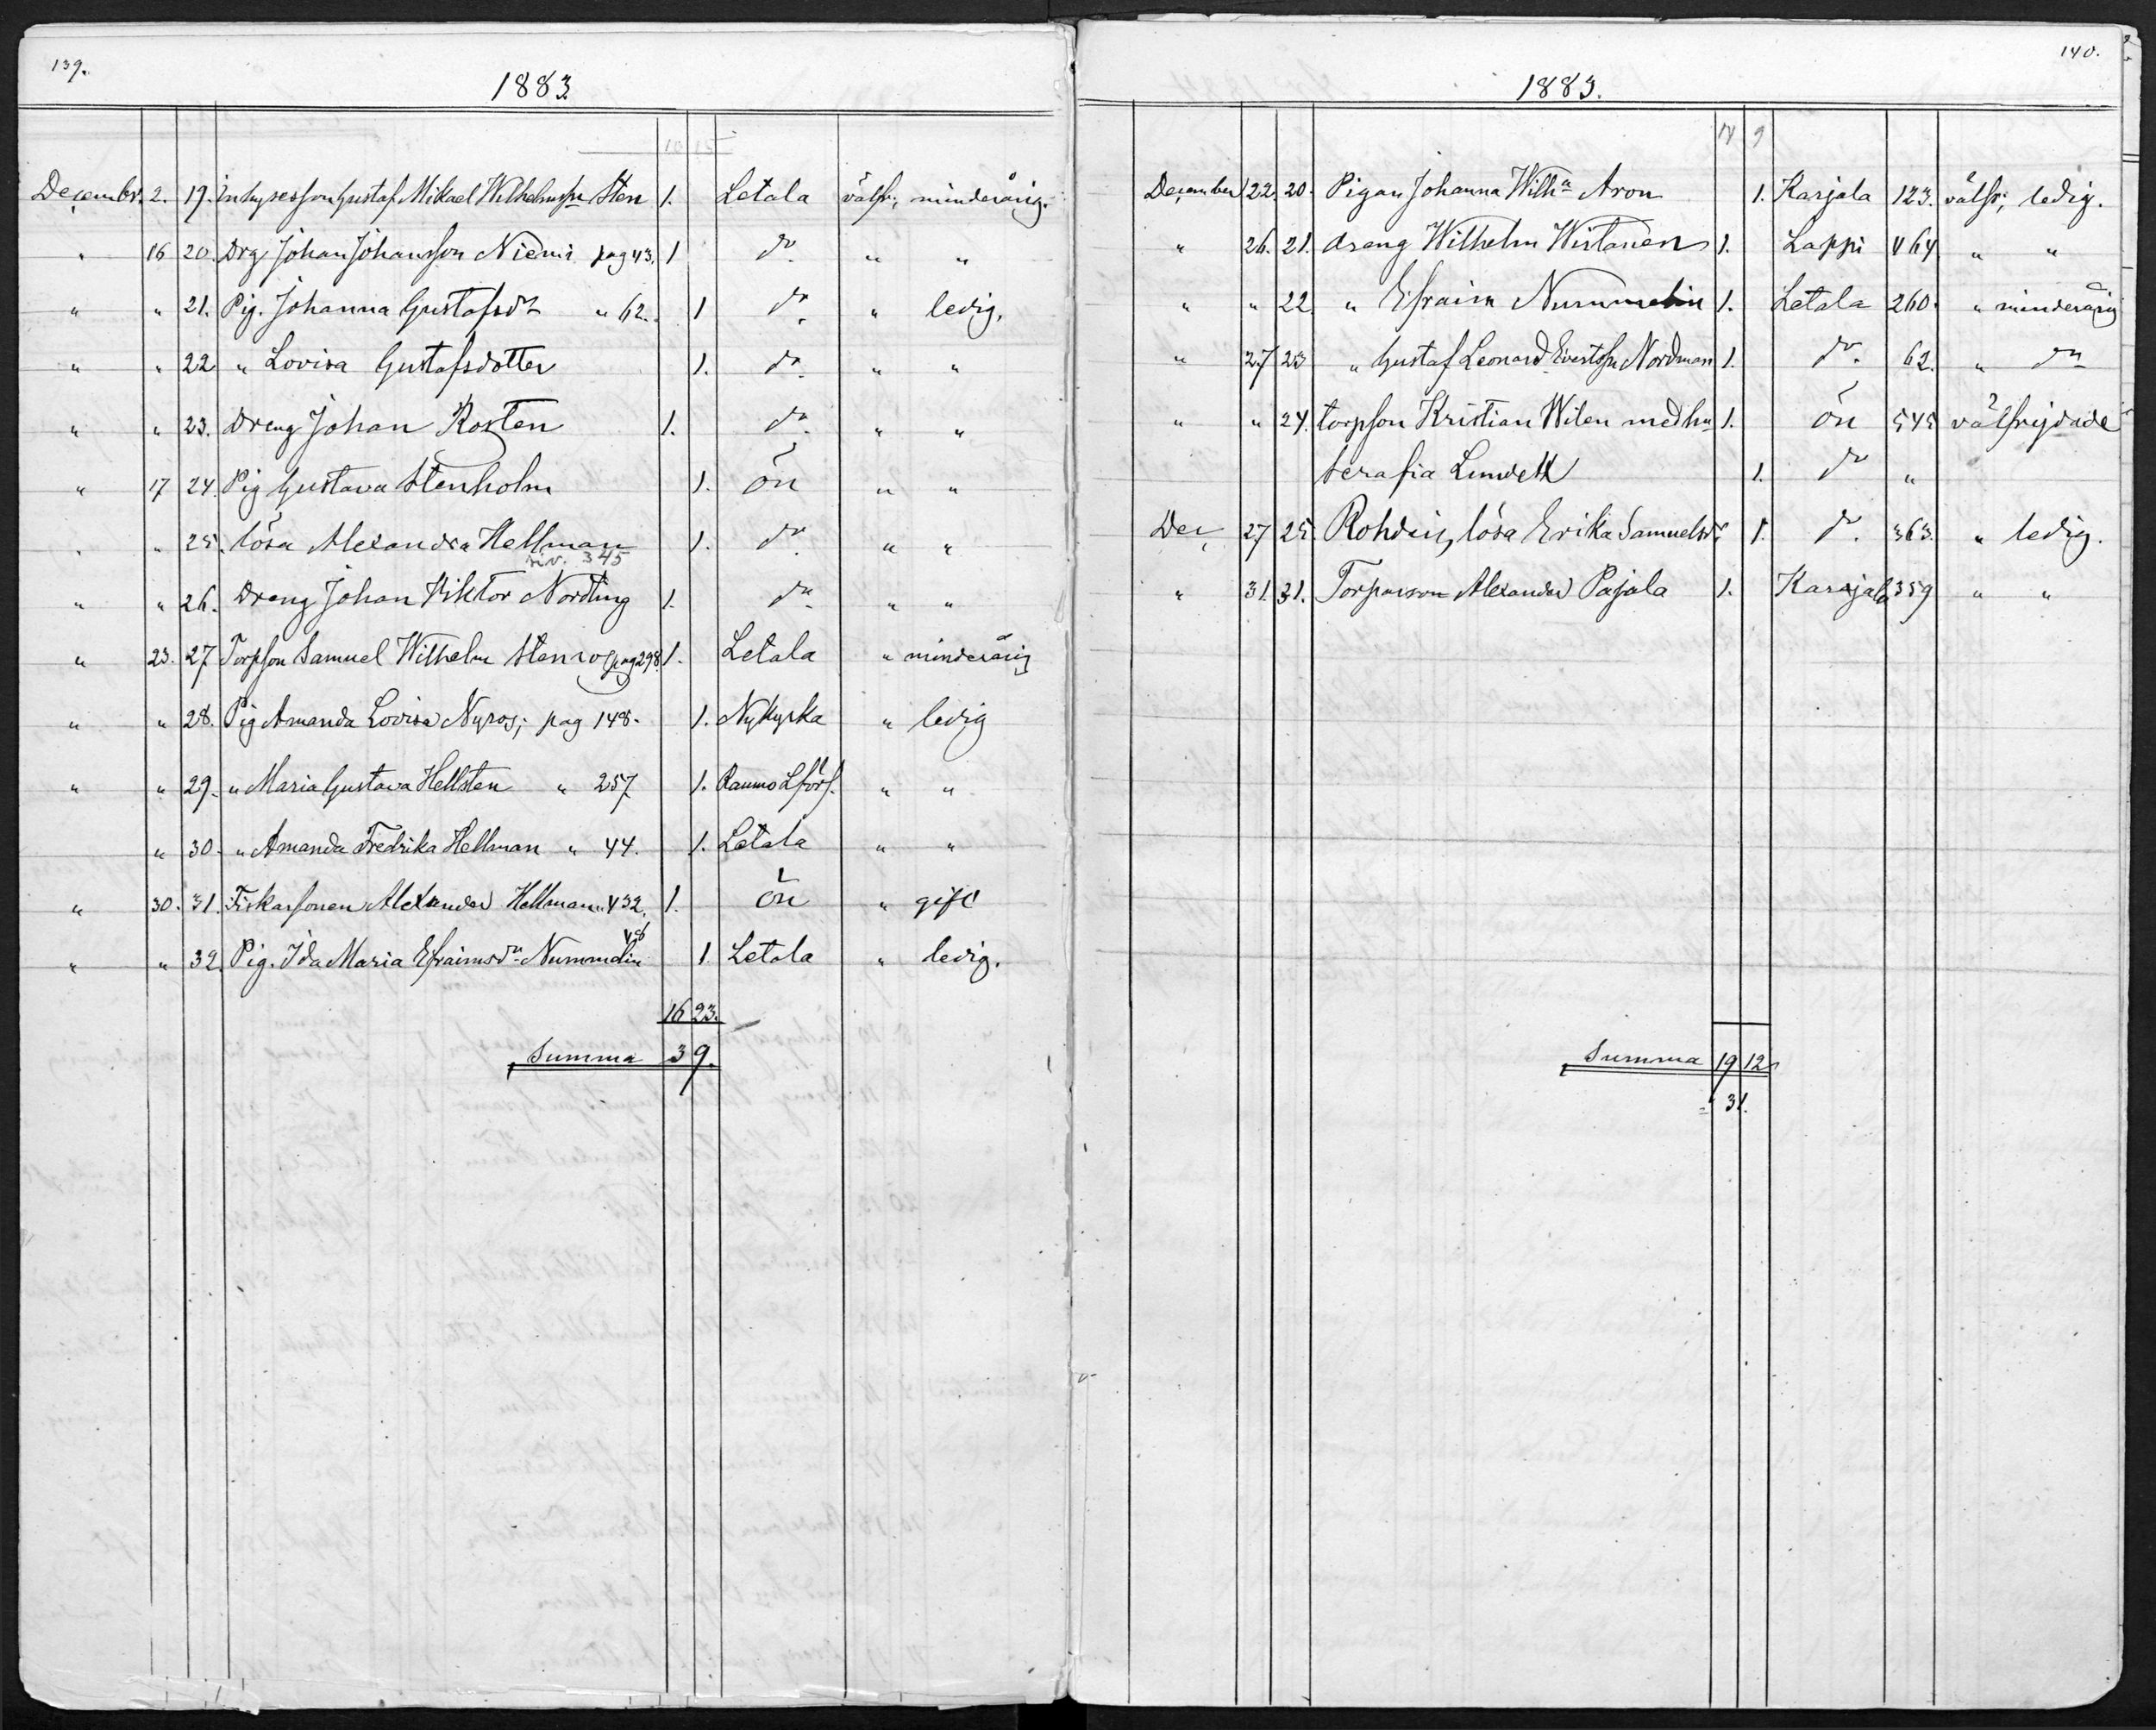 139.
1883.
10 15
December. 2. 19. Inhysesson Gustaf Mikael Wilhelmssn Sten 1. Letala välfr; minderårig.
" 16 20. Drg Johan Johansson Niemi pag 43. 1 do " "
" " 21. Pig. Johanna Gustafsdt " 62. 1 do " ledig.
" " 22 " Lovisa Gustafsdotter 1. do " "
" " 23. Dreng Johan Rosten 1. do " "
" 17 24. Pig Gustava Stenholm 1. ön " "
" " 25. lösa Alexandra Hellman 1. do " "
345
" " 26. Dreng Johan Viktor Nordling 1. do " "
" 23. 27 Torpson Samuel Wilhelm Stenros pag 298. 1. Letala " minderårig
" " 28. Pig Amanda Lovisa Nyros; pag 148. 1. Nykyrka " ledig
" " 29. " Maria Gustava Hellsten " 257 1. Raumo Lförs. " "
" 30. " Amanda Fredrika Hellman " 44. 1. Letala " "
" 30. 31. Fiskarsonen Alexander Hellman " 432. 1. ön " gift
" " 32. Pig. Ida Maria Efraimsdr Nummelin 1 Letala " ledig.
16 23.
Summa 39.
140.
1883.
14 9
December 22. 20. Pigan Johanna Wilhna Aron 1. Karjala 123. välfr; ledig.
" 26. 21. dreng Wilhelm Wistanen 1. Lappi 464 " "
" " 22. " Efraim Nummelin 1. Letala 260. " minderårig
" 27 23 " Gustaf Leonard Evertssn Nordman 1. do 62. " do
" " 24. torpson Kristian Wilen med hu 1. ön 545 välfrejdade
Serafia Lundell 1. do "
Dec, 27 25. Rohdin, lösa Erika Samuelsdr 1. do 363. " ledig.
" 31. 31. Torparson Alexander Pajala 1. Karjala 359 " "
Summa 19 12
= 31.